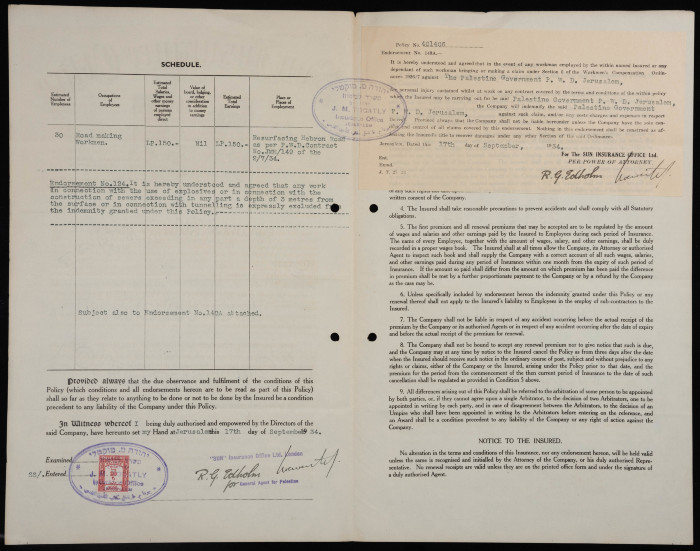 SCHEDULE.
Estimated Number of Employees
Occupations of Employees
Estimated Total Salaries, Wages and other money earnings of persons employed direct
Value of board, lodging, or other consideration in addition to money earnings
Estimated Total Earnings
Place or Places of Employment
20 Road making Workmen. LP.150.- Nil LP.150.- Resurfacing Hebron Road
as per P.W.D.Contract
of
6/7/34.
Endorsement No.194. It is hereby understood and agreed that any work
in connection with the use of explosives or in connection with the
construction of sewers exceeding in any part a depth of 3 metres from
the surface or in connection with tunnelling is expressly excluded from
the indemnity granted under this Policy.
Subject also to Endorsement No.148A attached.
Provided always that the due observance and fulfilment of the conditions of this
Policy (which conditions and all endorsements hereon are to be read as part of this Policy)
shall so far as they relate to anything to be done or not to be done by the Insured be a condition
precedent to any liability of the Company under this Policy.
In Witness whereof I being duly authorised and empowered by the Directors of the
said Company, have hereunto set my Hand at Jerusalem this 17th day of September 1934.
Examined
Entered
"SUN" Insurance Office Ltd. London
R. G. Edholm
for General Agent for Palestine
Policy No. 401406
Endorsement No. 148A.
It is hereby understood and agreed that in the event of any workman employed by the within named Insured or any
dependent of such workman bringing or making a claim under Section 5 of the Workmen's Compensation Ordinance
against The Palestine Government P. W. D. Jerusalem,
personal injury sustained whilst at work on any contract covered by the terms and conditions of the within policy
which the Insured may be carrying out for the said Palestine Government P. W. D. Jerusalem,
the Company will indemnify the said Palestine Government
P. W. D. Jerusalem, against such claim, and/or any costs charges and expenses in respect
thereof. Provided always that the Company shall not be liable hereunder unless the Company have the sole
control of all claims covered by this endorsement. Nothing in this endorsement shall be construed as
the Insured's title to recover damages under any other Section of the said Ordinance.
Jerusalem, Dated this 17th day of September, 1934.
For The SUN INSURANCE OFFICE Ltd.
PER POWER OF ATTORNEY.
R. G. Edholm
written consent of the Company.
4. The Insured shall take reasonable precautions to prevent accidents and shall comply with all Statutory
obligations.
5. The first premium and all renewal premiums that may be accepted are to be regulated by the amount
of wages and salaries and other earnings paid by the Insured to Employees during each period of Insurance.
The name of every Employee, together with the amount of wages, salary, and other earnings, shall be duly
recorded in a proper wages book. The Insured shall at all times allow the Company, its Attorney or authorised
Agent to inspect such book and shall supply the Company with a correct account of all such wages, salaries,
and other earnings paid during any period of Insurance within one month from the expiry of such period of
Insurance. If the amount so paid shall differ from the amount on which premium has been paid the difference
in premium shall be met by a further proportionate payment to the Company or by a refund by the Company
as the case may be.
6. Unless specifically included by endorsement hereon the indemnity granted under this Policy or any
renewal thereof shall not apply to the Insured's liability to Employees in the employ of sub-contractors to the
Insured.
7. The Company shall not be liable in respect of any accident occurring before the actual receipt of the
premium by the Company or its authorised Agents or in respect of any accident occurring after the date of expiry
and before the actual receipt of the premium for renewal.
8. The Company shall not be bound to accept any renewal premium nor to give notice that such is due,
and the Company may at any time by notice to the Insured cancel the Policy as from three days after the date
when the Insured should receive such notice in the ordinary course of post, subject and without prejudice to any
rights or claims, either of the Company or the Insured, arising under the Policy prior to that date, and the
premium for the period from the commencement of the then current period of Insurance to the date of such
cancellation shall be regulated as provided in Condition 5 above.
9. All differences arising out of this Policy shall be referred to the arbitration of some person to be appointed
by both parties, or, if they cannot agree upon a single Arbitrator, to the decision of two Arbitrators, one to be
appointed in writing by each party, and in case of disagreement between the Arbitrators, to the decision of an
Umpire who shall have been appointed in writing by the Arbitrators before entering on the reference, and
an Award shall be a condition precedent to any liability of the Company or any right of action against the
Company.
NOTICE TO THE INSURED.
No alteration in the terms and conditions of this Insurance, nor any endorsement hereon, will be held valid
unless the same is recognised and initialled by the Attorney of the Company, or his duly authorised Representative.
No renewal receipts are valid unless they are on the printed office form and under the signature of
a duly authorised Agent.